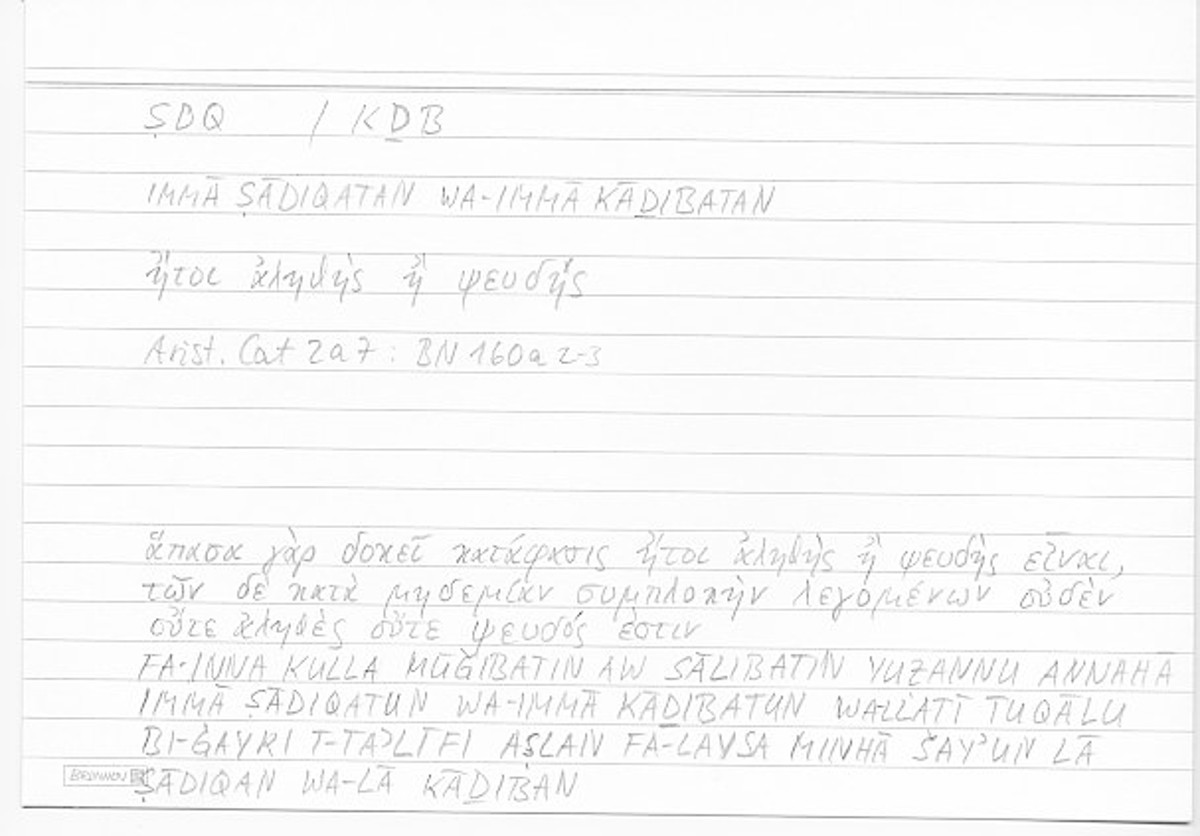 ṢDQ / KḎB
IMMĀ ṢĀDIQATAN WA-IMMĀ KĀḎIBATAN
ἤτοι ἀληθὴς ἢ ψευδής
Arist. Cat 2a7 : BN 160a 2-3
ἅπασα γὰρ δοκεῖ κατάφασις ἤτοι ἀληθὴς ἢ ψευδὴς εἶναι,
τῶν δὲ κατὰ μηδεμίαν συμπλοκὴν λεγομένων οὐδὲν
οὔτε ἀληθὲς οὔτε ψευδός ἐστιν
FA-INNA KULLA MŪǦIBATIN AW SĀLIBATIN YUẒANNU ANNAHĀ
IMMĀ ṢĀDIQATUN WA-IMMĀ KĀḎIBATUN WALLATĪ TUQĀLU
BI-ĠAYRI T-TAʾLĪFI AṢLAN FA-LAYSA MINHĀ ŠAYʾUN LĀ
ṢĀDIQAN WA-LĀ KĀḎIBAN